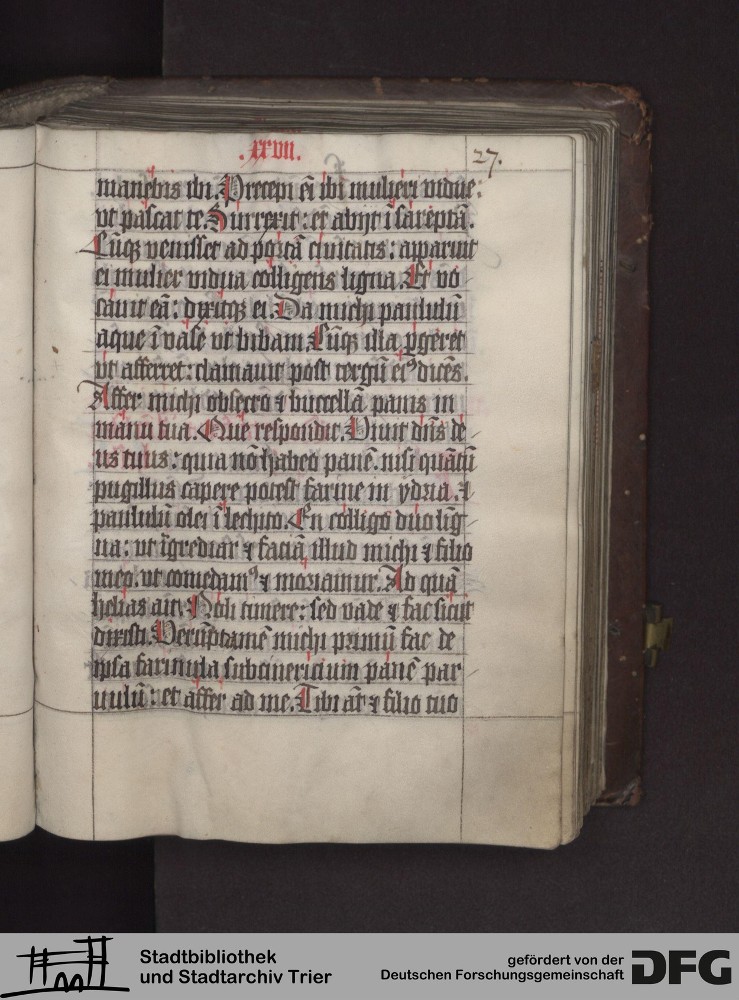 .xxvii.
27.
manebis ibi. Precepi eī ibi mulieri vidue:
vt pascat te. Surrexit: et abijt ī sareptā.
Cūq; venisset ad portā ciuitatis: apparuit
ei mulier vidua colligens ligna. Et vo
cauit eā: dixitq; ei. Da michi paululū
aque ī vase vt bibam. Cūq; illa ꝑgeret
vt afferret: clamauit post tergū eiꝰ dicēs.
Affer michi obsecro ⁊ buccellā panis in
manu tua. Que respondit. Viuit dn̄s de
us tuus: quia nō habeo panē. nisi quātū
pugillus capere potest farine in ydria. ⁊
paululū olei ī lechito. En colligo duo lig
na: vt īgrediar ⁊ faciā illud michi ⁊ filio
meo. vt comedamꝰ ⁊ moriamur. Ad quā
helias ait. Noli timere: sed vade ⁊ fac sicut
dixisti. Verūptamē michi primū fac de
ipsa farinula subcinericium panē par
uulū: et affer ad me. Tibi āt ⁊ filio tuo
Stadtbibliothek
und Stadtarchiv Trier
gefördert von der
Deutschen Forschungsgemeinschaft
DFG